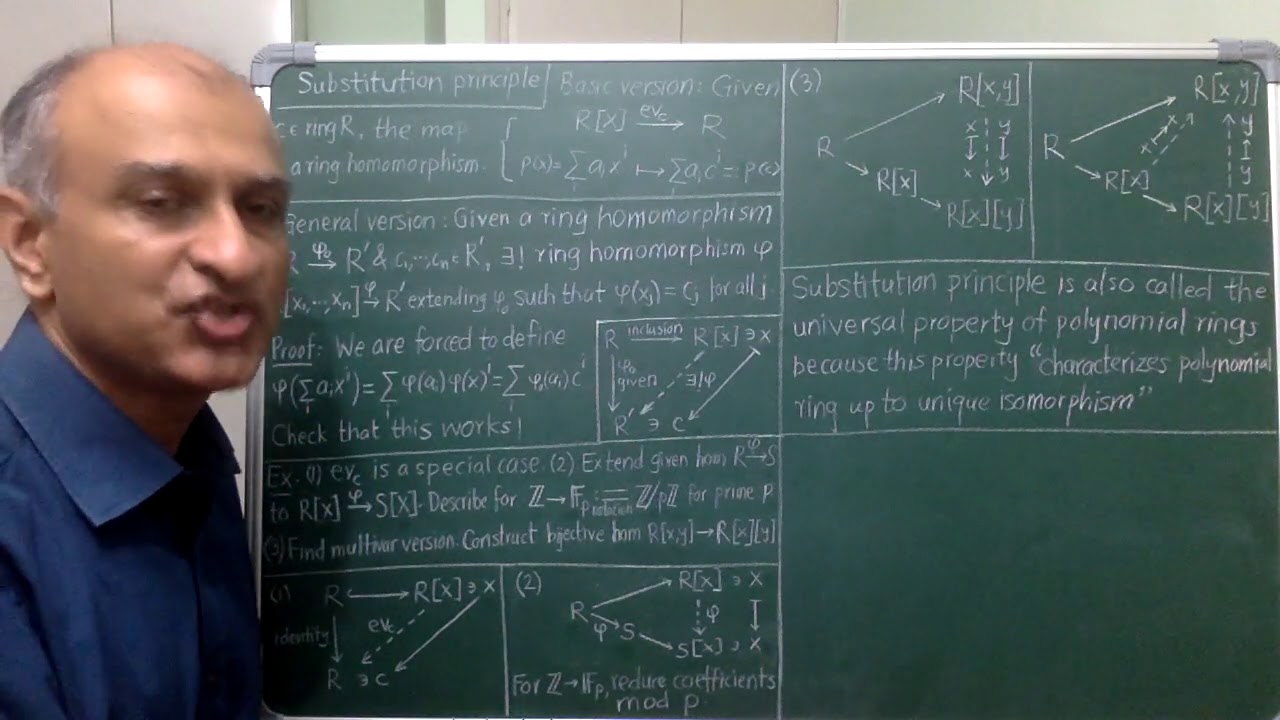 Substitution principle Basic version: Given
c ∈ ring R, the map R[x] ev_c→ R
a ring homomorphism. p(x) = Σ_i a_i x^i ↦ Σ_i a_i c^i =: p(c)
General version: Given a ring homomorphism
R φ₀→ R' & c₁,…,c_n ∈ R', ∃! ring homomorphism φ
[x₁,…,x_n] φ→ R' extending φ₀ such that φ(x_j) = c_j for all j.
Proof: We are forced to define
φ(Σ_i a_i x^i) = Σ_i φ(a_i) φ(x)^i = Σ_i φ₀(a_i) c^i
Check that this works!
R inclusion→ R[x] ∋ x
φ₀ given ∃!φ
R' ∋ c
Ex. (1) ev_c is a special case. (2) Extend given hom R φ→ S
to R[x] φ→ S[x]. Describe for ℤ → 𝔽_p := notation ℤ/pℤ for prime p
(3) Find multivar version. Construct bijective hom R[x,y] → R[x][y]
(1) R → R[x] ∋ x
identity ev_c
R ∋ c
(2) R[x] ∋ x
R φ
φ S
S[x] ∋ x
For ℤ → 𝔽_p, reduce coefficients
mod p
(3) R[x,y]
x y
R
R[x] x y
R[x][y]
R[x,y]
x y
R x
R[x] y
R[x][y]
Substitution principle is also called the
universal property of polynomial rings
because this property "characterizes polynomial
ring up to unique isomorphism"